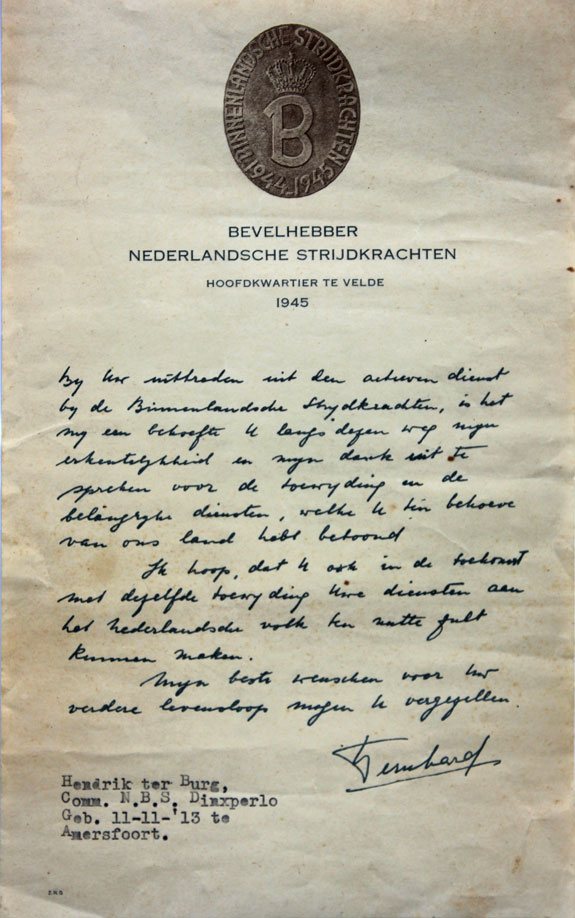 BINNENLANDSCHE STRIJDKRACHTEN
B
1944-1945
BEVELHEBBER
NEDERLANDSCHE STRIJDKRACHTEN
HOOFDKWARTIER TE VELDE
1945
By Uw uittreden uit den actieven dienst
by de Binnenlandsche Strydkrachten, is het
my een behoefte U langs dezen weg myn
erkentelykheid en myn dank uit te
spreken voor de toewyding en de
belangryke diensten, welke U ten behoeve
van ons land hebt betoond.
Ik hoop, dat U ook in de toekomst
met dezelfde toewyding Uwe diensten aan
het Nederlandsche volk ten nutte zult
kunnen maken.
Myn beste wenschen voor Uw
verdere levensloop mogen U vergezellen.
Bernhard
Hendrik ter Burg,
Comm. N.B.S. Dinxperlo
Geb. 11-11-'13 te
Amersfoort.